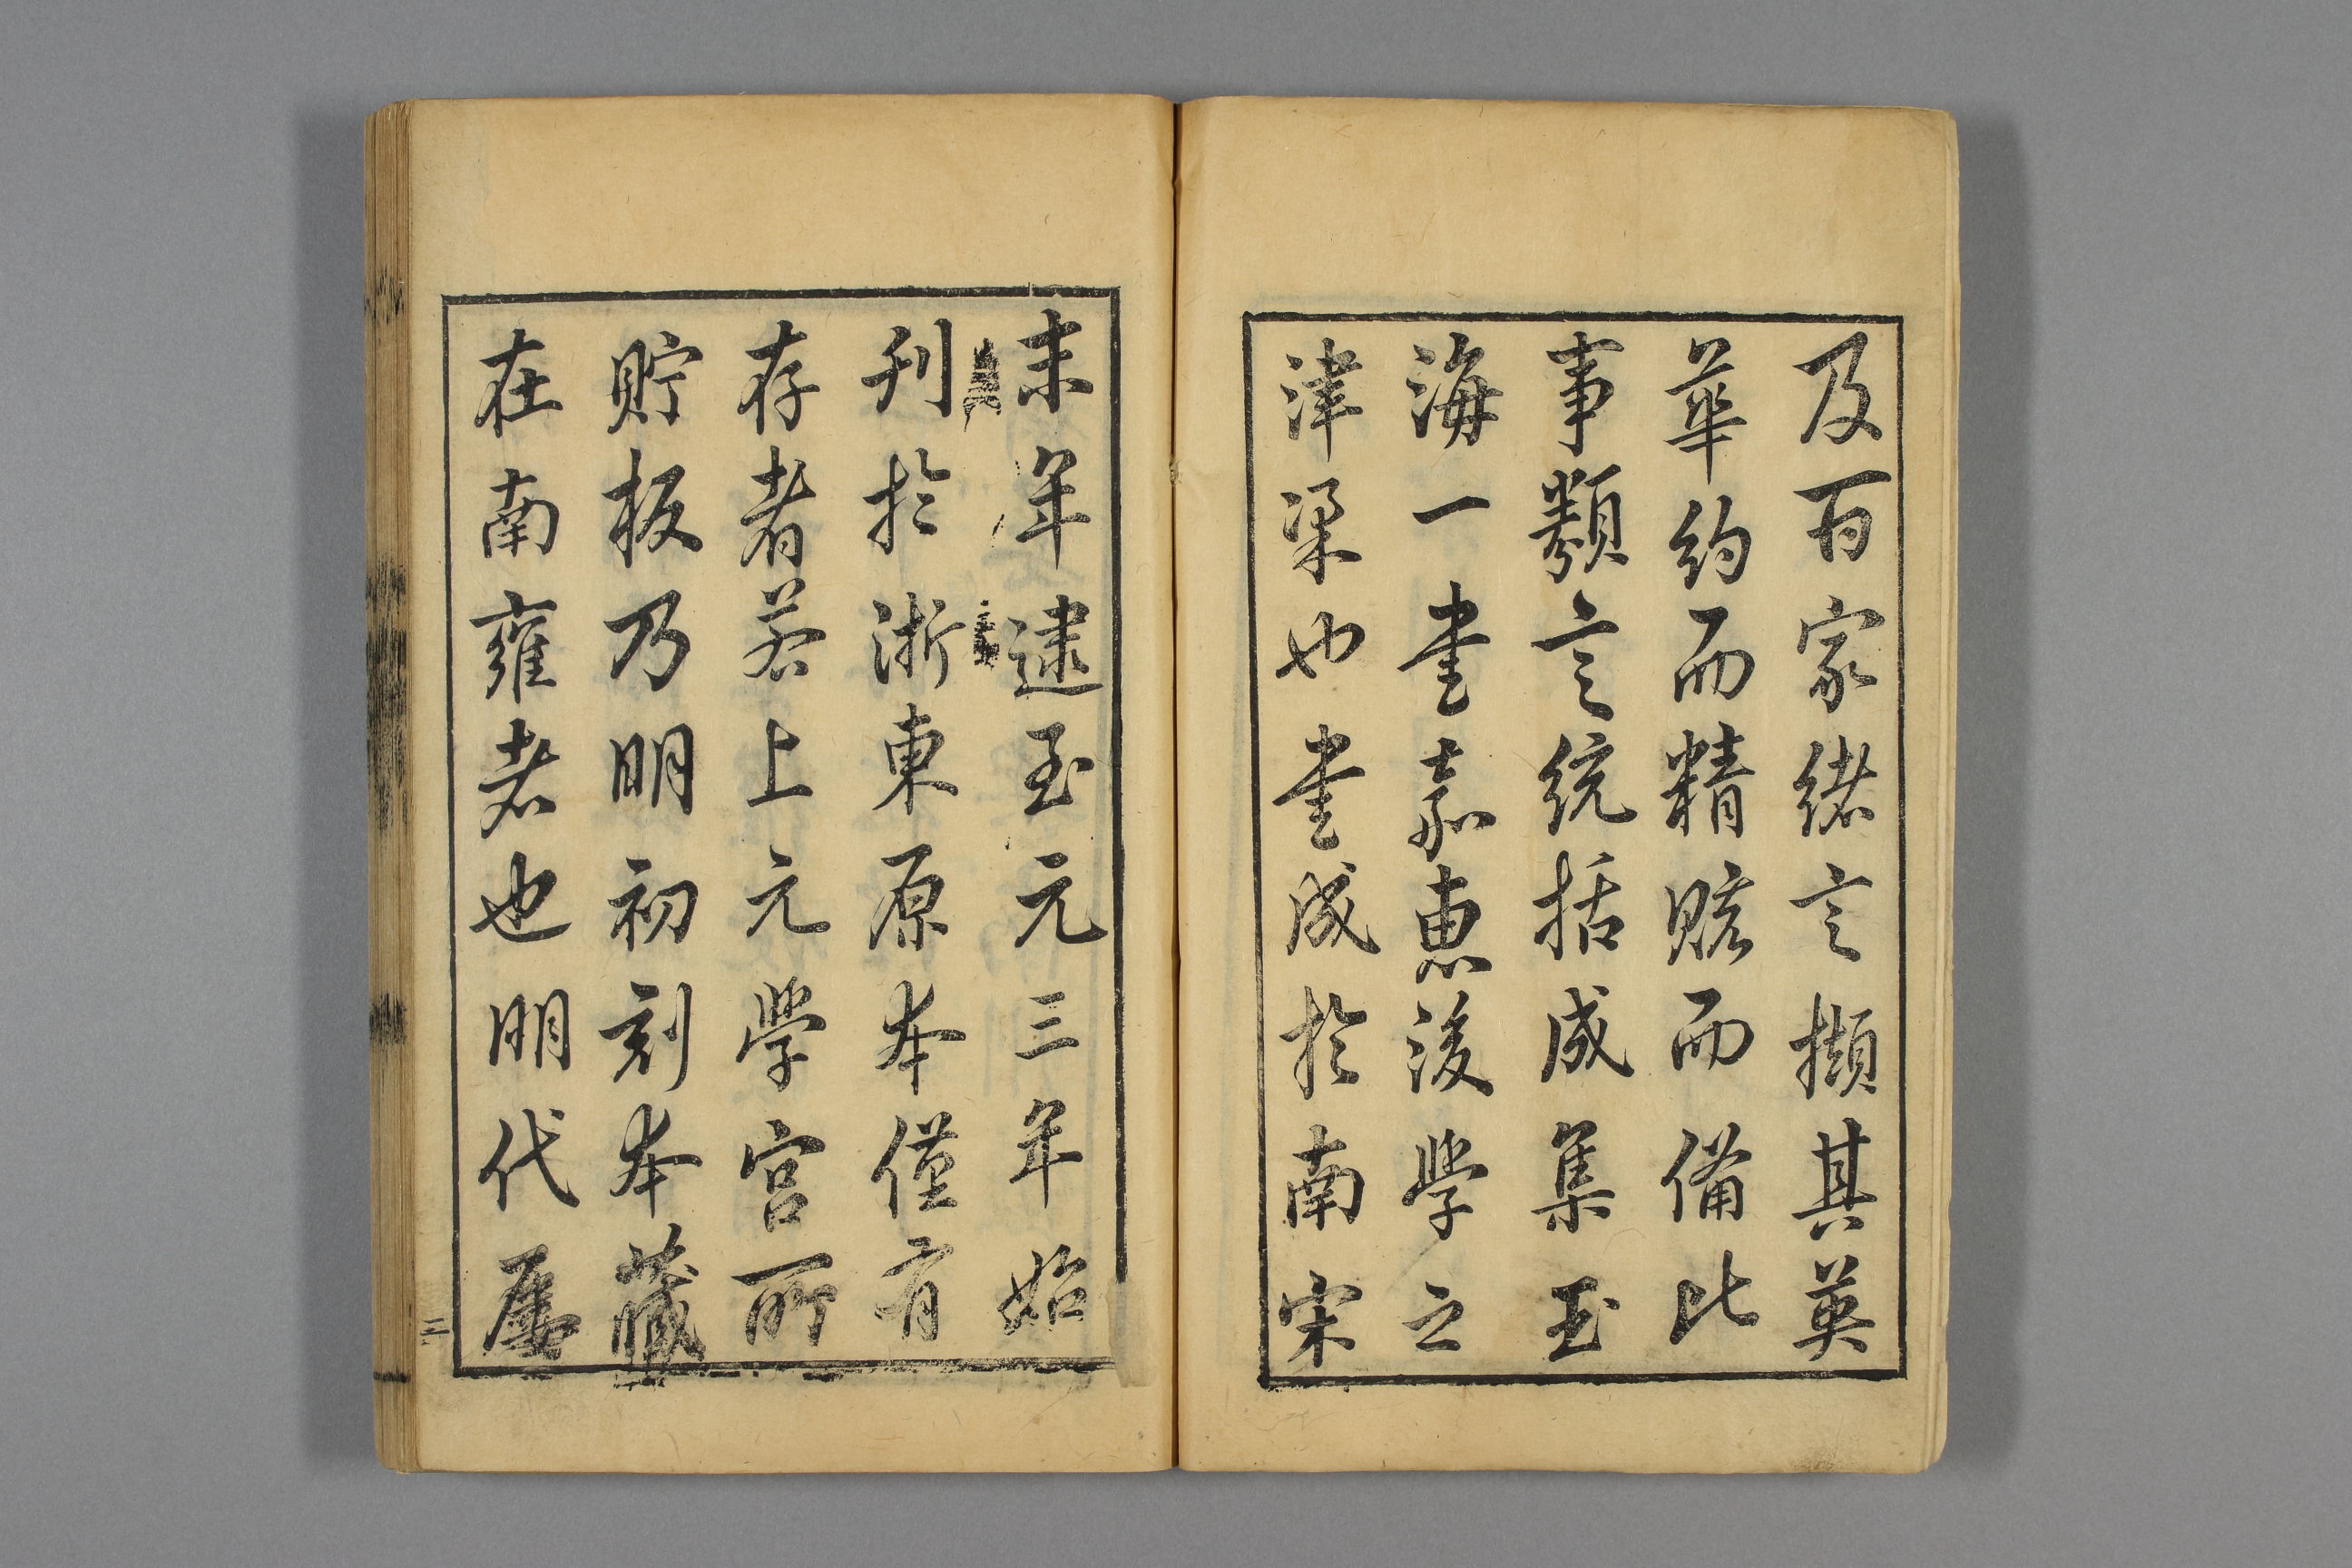 及百家緒言擷其英
華約而精賅而備比
事類言統括成集玉
海一書嘉惠後學之
津梁也書成於南宋
末年逮至元三年始
刊於浙東原本僅有
存者若上元學宮所
貯板乃明初刻本藏
在南雍者也明代屢
三